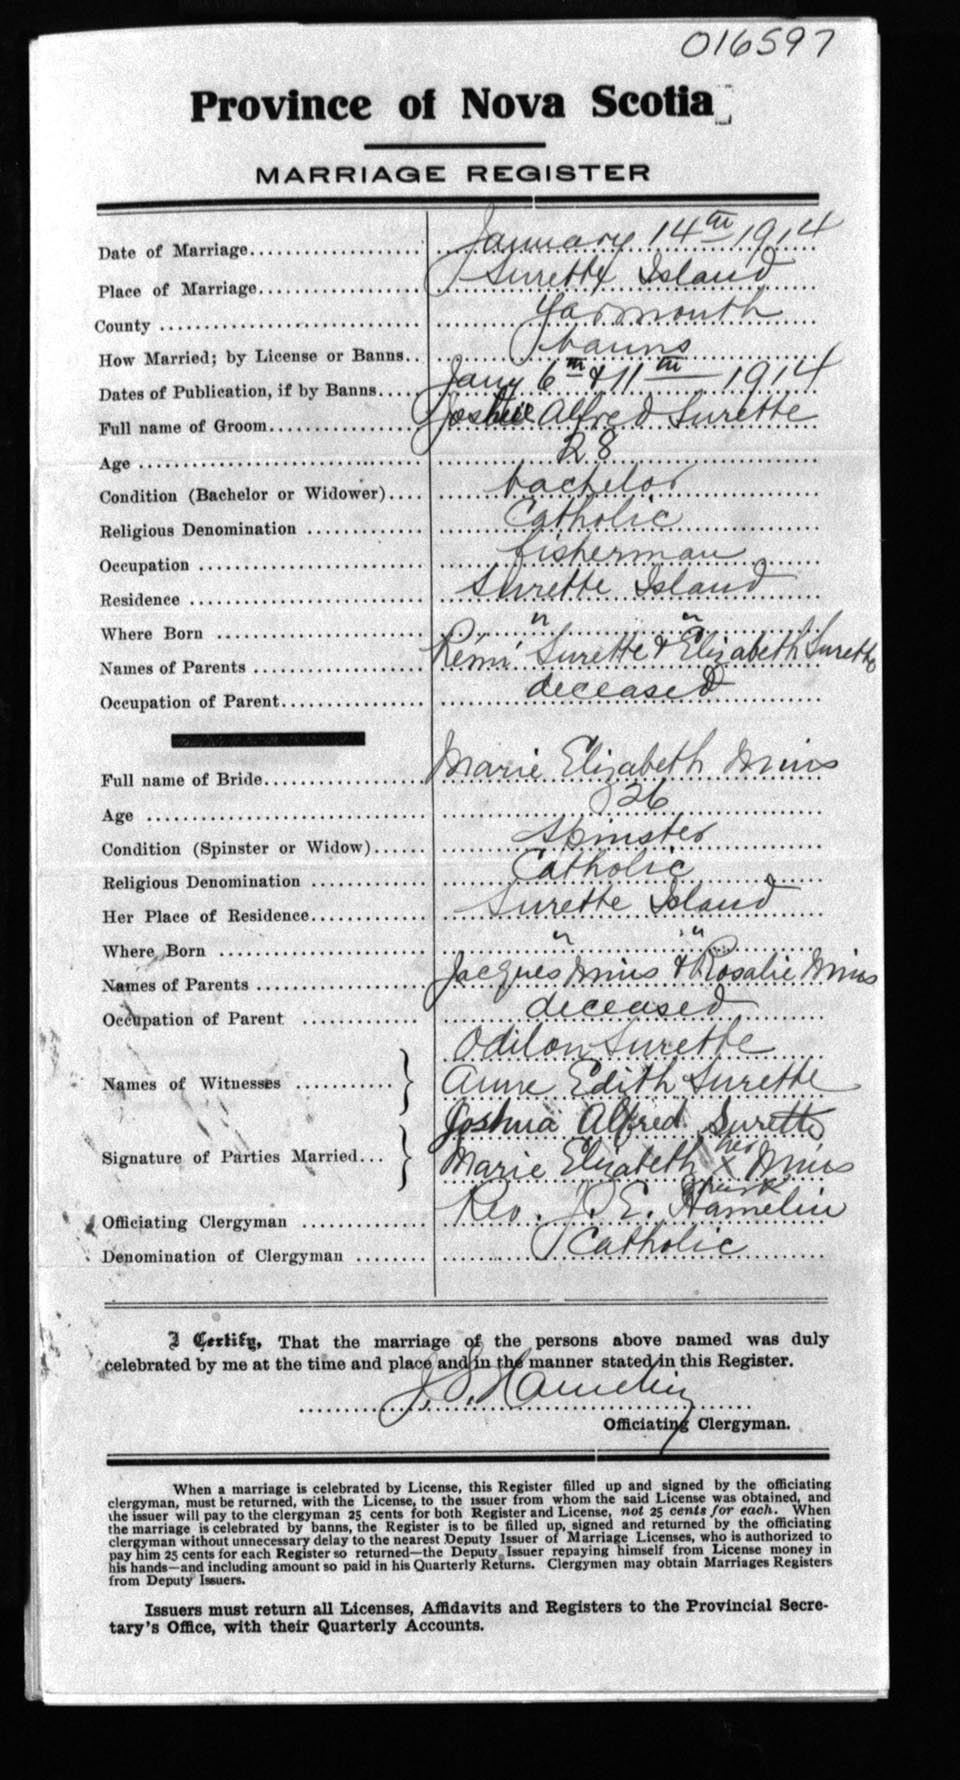 016597
Province of Nova Scotia
MARRIAGE REGISTER
Date of Marriage.................... January 14th 1914
Place of Marriage................... Surette Island
County ............................. Yarmouth
How Married; by License or Banns.. banns
Dates of Publication, if by Banns.... Jany 6th & 11th — 1914
Full name of Groom................. Alfred Surette
Age ................................ 28
Condition (Bachelor or Widower).... bachelor
Religious Denomination ............ Catholic
Occupation ......................... fisherman
Residence .......................... Surette Island
Where Born ....................... " "
Names of Parents ................... Rémi Surette & Elizabeth Surette
Occupation of Parent................ deceased
Full name of Bride.................. Marie Elizabeth Mius
Age ................................ 26
Condition (Spinster or Widow)...... Spinster
Religious Denomination ............ Catholic
Her Place of Residence............. Surette Island
Where Born ....................... " "
Names of Parents ................... Jacques Mius & Rosalie Mius
Occupation of Parent ............. deceased
Odilon Surette
Names of Witnesses ............ } Anne Edith Surette
Joshua Alfred Surette
Signature of Parties Married... } Marie Elizabeth her x mark Mius
Officiating Clergyman ............. Rev. J. E. Hamelin
Denomination of Clergyman ........ Catholic
I Certify, That the marriage of the persons above named was duly
celebrated by me at the time and place and in the manner stated in this Register.
J. E. Hamelin
Officiating Clergyman.
When a marriage is celebrated by License, this Register filled up and signed by the officiating
clergyman, must be returned, with the License, to the issuer from whom the said License was obtained, and
the issuer will pay to the clergyman 25 cents for both Register and License, not 25 cents for each. When
the marriage is celebrated by banns, the Register is to be filled up, signed and returned by the officiating
clergyman without unnecessary delay to the nearest Deputy Issuer of Marriage Licenses, who is authorized to
pay him 25 cents for each Register so returned—the Deputy Issuer repaying himself from License money in
his hands—and including amount so paid in his Quarterly Returns. Clergymen may obtain Marriages Registers
from Deputy Issuers.
Issuers must return all Licenses, Affidavits and Registers to the Provincial Secre-
tary's Office, with their Quarterly Accounts.